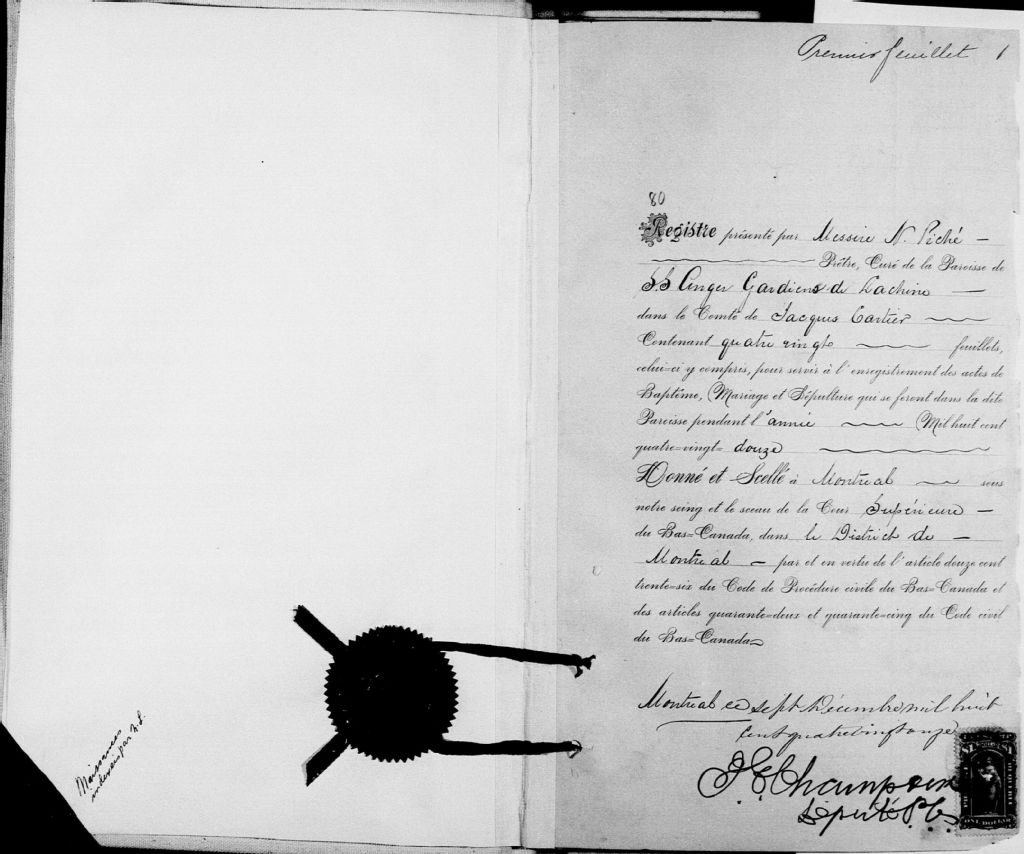 Premier feuillet 1
80
Registre présenté par Messire N. Piché
Prêtre, Curé de la Paroisse de
SS Anges Gardiens de Lachine
dans le Comté de Jacques Cartier
Contenant quatre vingt feuillets,
celui-ci y compris, pour servir à l'enregistrement des actes de
Baptême, Mariage et Sépulture qui se feront dans la dite
Paroisse pendant l'année Mil huit cent
quatre-vingt- douze
Donné et Scellé à Montreal sous
notre seing et le sceau de la Cour Supérieure
du Bas-Canada, dans le District de
Montreal par et en vertu de l'article douze cent
trente-six du Code de Procédure civile du Bas-Canada et
des articles quarante-deux et quarante-cinq du Code civil
du Bas-Canada
Montreal ce sept Décembre mil huit
cent quatre vingt onze
Député P.C.S.
ONE DOLLAR
Naissances
par N.S.